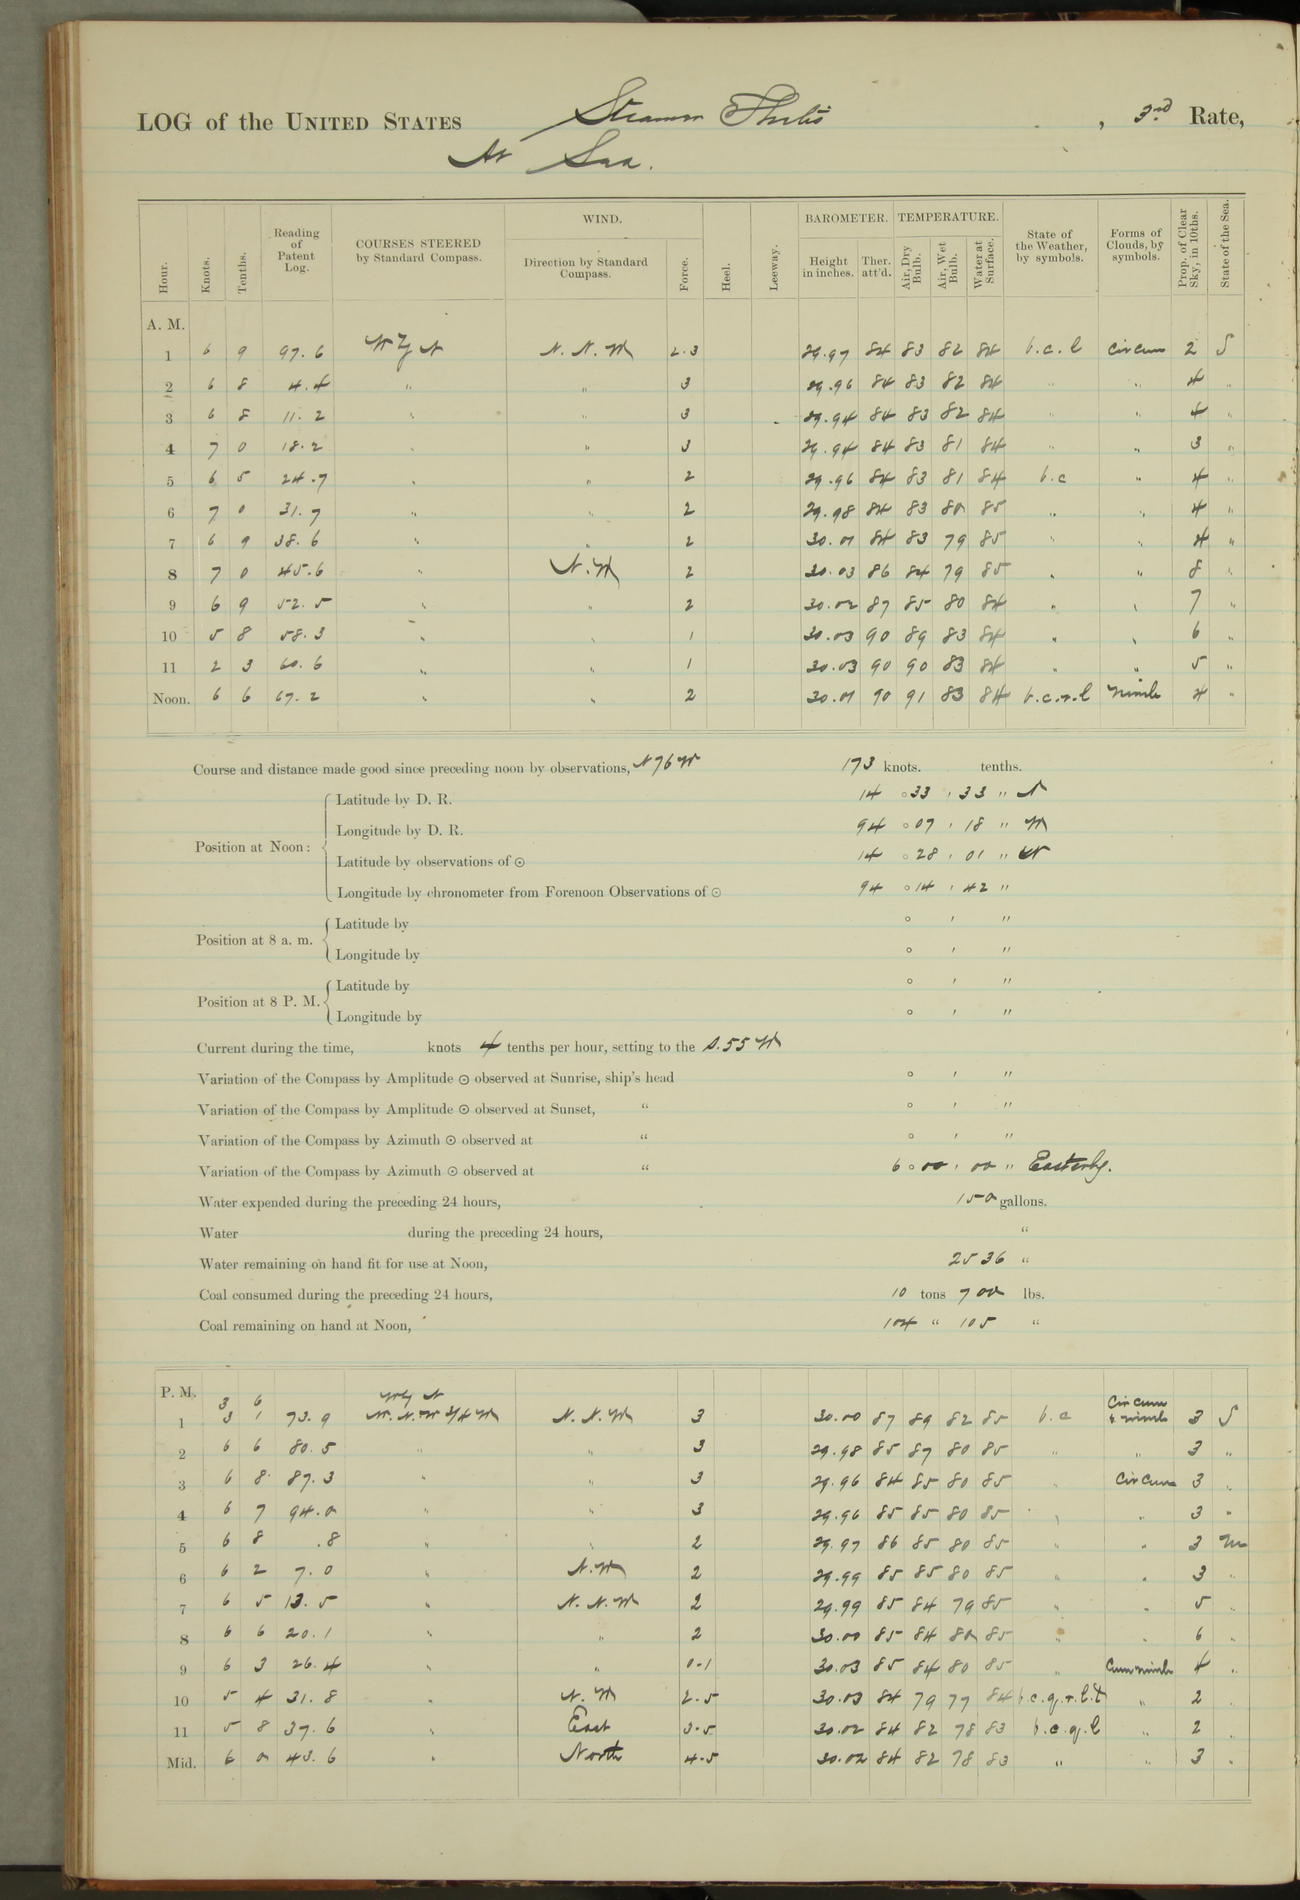 LOG of the UNITED STATES Steamer Thetis, 3rd Rate,
At Sea.
Hour. Knots. Tenths. Reading of Patent Log. COURSES STEERED by Standard Compass. WIND. Direction by Standard Compass. Force. Heel. Leeway. BAROMETER. Height in inches. Ther. att'd. TEMPERATURE. Air, Dry Bulb. Air, Wet Bulb. Water at Surface. State of the Weather, by symbols. Forms of Clouds, by symbols. Prop. of Clear Sky, in 10ths. State of the Sea.
A. M.
1 6 9 97.6 W y N N. N. W 2.3 29.97 84 83 82 84 b.c.l Cir Cum 2 S
2 6 8 4.4 " " 3 29.96 84 83 82 84 " " 4 "
3 6 8 11.2 " " 3 29.94 84 83 82 84 " " 4 "
4 7 0 18.2 " " 3 29.94 84 83 81 84 " " 3 "
5 6 5 24.7 " " 2 29.96 84 83 81 84 b.c " 4 "
6 7 0 31.7 " " 2 29.98 84 83 80 85 " " 4 "
7 6 9 38.6 " " 2 30.01 84 83 79 85 " " 4 "
8 7 0 45.6 " N.W 2 30.03 86 84 79 85 " " 8 "
9 6 9 52.5 " " 2 30.02 87 85 80 84 " " 7 "
10 5 8 58.3 " " 1 30.03 90 89 83 84 " " 6 "
11 2 3 60.6 " " 1 30.03 90 90 83 84 " " 5 "
Noon. 6 6 67.2 " " 2 30.01 90 91 83 84 b.c.r.l Nimb 4 "
Course and distance made good since preceding noon by observations, N 76 W 173 knots. tenths.
Position at Noon:
Latitude by D. R. 14 ° 33 ' 33 " N
Longitude by D. R. 94 ° 07 ' 18 " W
Latitude by observations of ☉ 14 ° 28 ' 01 " N
Longitude by chronometer from Forenoon Observations of ☉ 94 ° 14 ' 42 "
Position at 8 a. m.
Latitude by ° ' "
Longitude by ° ' "
Position at 8 P. M.
Latitude by ° ' "
Longitude by ° ' "
Current during the time, knots 4 tenths per hour, setting to the S. 55 W
Variation of the Compass by Amplitude ☉ observed at Sunrise, ship's head ° ' "
Variation of the Compass by Amplitude ☉ observed at Sunset, " ° ' "
Variation of the Compass by Azimuth ☉ observed at " ° ' "
Variation of the Compass by Azimuth ☉ observed at " 6 ° 00 ' 00 " Easterly.
Water expended during the preceding 24 hours, 150 gallons.
Water during the preceding 24 hours, "
Water remaining on hand fit for use at Noon, 2536 "
Coal consumed during the preceding 24 hours, 10 tons 700 lbs.
Coal remaining on hand at Noon, 104 " 105 "
P. M.
3 6 W y N
1 3 1 73.9 W. N. W 3/4 W N. N. W 3 30.00 87 89 82 85 b.c Cir Cum & nimb 3 S
2 6 6 80.5 " " 3 29.98 85 87 80 85 " " 3 "
3 6 8 87.3 " " 3 29.96 84 85 80 85 " Cir Cum 3 "
4 6 7 94.0 " " 3 29.96 85 85 80 85 " " 3 "
5 6 8 .8 " " 2 29.97 86 85 80 85 " " 3 M
6 6 2 7.0 " N.W 2 29.99 85 85 80 85 " " 3 "
7 6 5 13.5 " N. N. W 2 29.99 85 84 79 85 " " 5 "
8 6 6 20.1 " " 2 30.00 85 84 80 85 " " 6 "
9 6 3 26.4 " " 0-1 30.03 85 84 80 85 " Cum nimb 4 "
10 5 4 31.8 " N. W 2-5 30.03 84 79 77 84 b.c.q.r.l.t " 2 "
11 5 8 37.6 " East 3-5 30.02 84 82 78 83 b.c.q.l " 2 "
Mid. 6 0 43.6 " North 4-5 30.02 84 82 78 83 " " 3 "